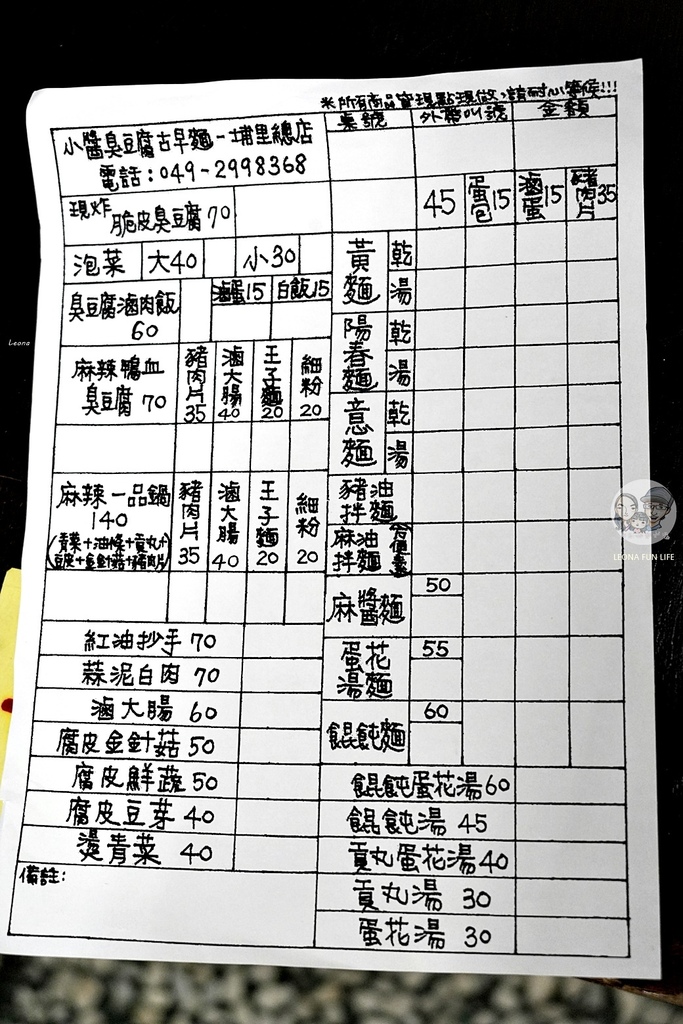 ※所有商品皆現點現做,請耐心等候!!!
小醬臭豆腐古早麵-埔里總店
電話:049-2998368
桌號
外帶叫號
金額
現炸
脆皮臭豆腐 70
45
蛋包 15
滷蛋 15
豬肉片 35
泡菜 大40 小30
臭豆腐滷肉飯
60
滷蛋15 白飯15
麻辣鴨血
臭豆腐 70
豬肉片 35
滷大腸 40
王子麵 20
細粉 20
麻辣一品鍋
140
(青菜+油條+貢丸+
豆皮+金針菇+豬肉片)
豬肉片 35
滷大腸 40
王子麵 20
細粉 20
紅油抄手 70
蒜泥白肉 70
滷大腸 60
腐皮金針菇 50
腐皮鮮蔬 50
腐皮豆芽 40
燙青菜 40
備註:
黃麵
乾
湯
陽春麵
乾
湯
意麵
乾
湯
豬油
拌麵
麻油
拌麵
麻醬麵
50
蛋花
湯麵
55
餛飩麵
60
餛飩蛋花湯 60
餛飩湯 45
貢丸蛋花湯 40
貢丸湯 30
蛋花湯 30
Leona
LEONA FUN LIFE